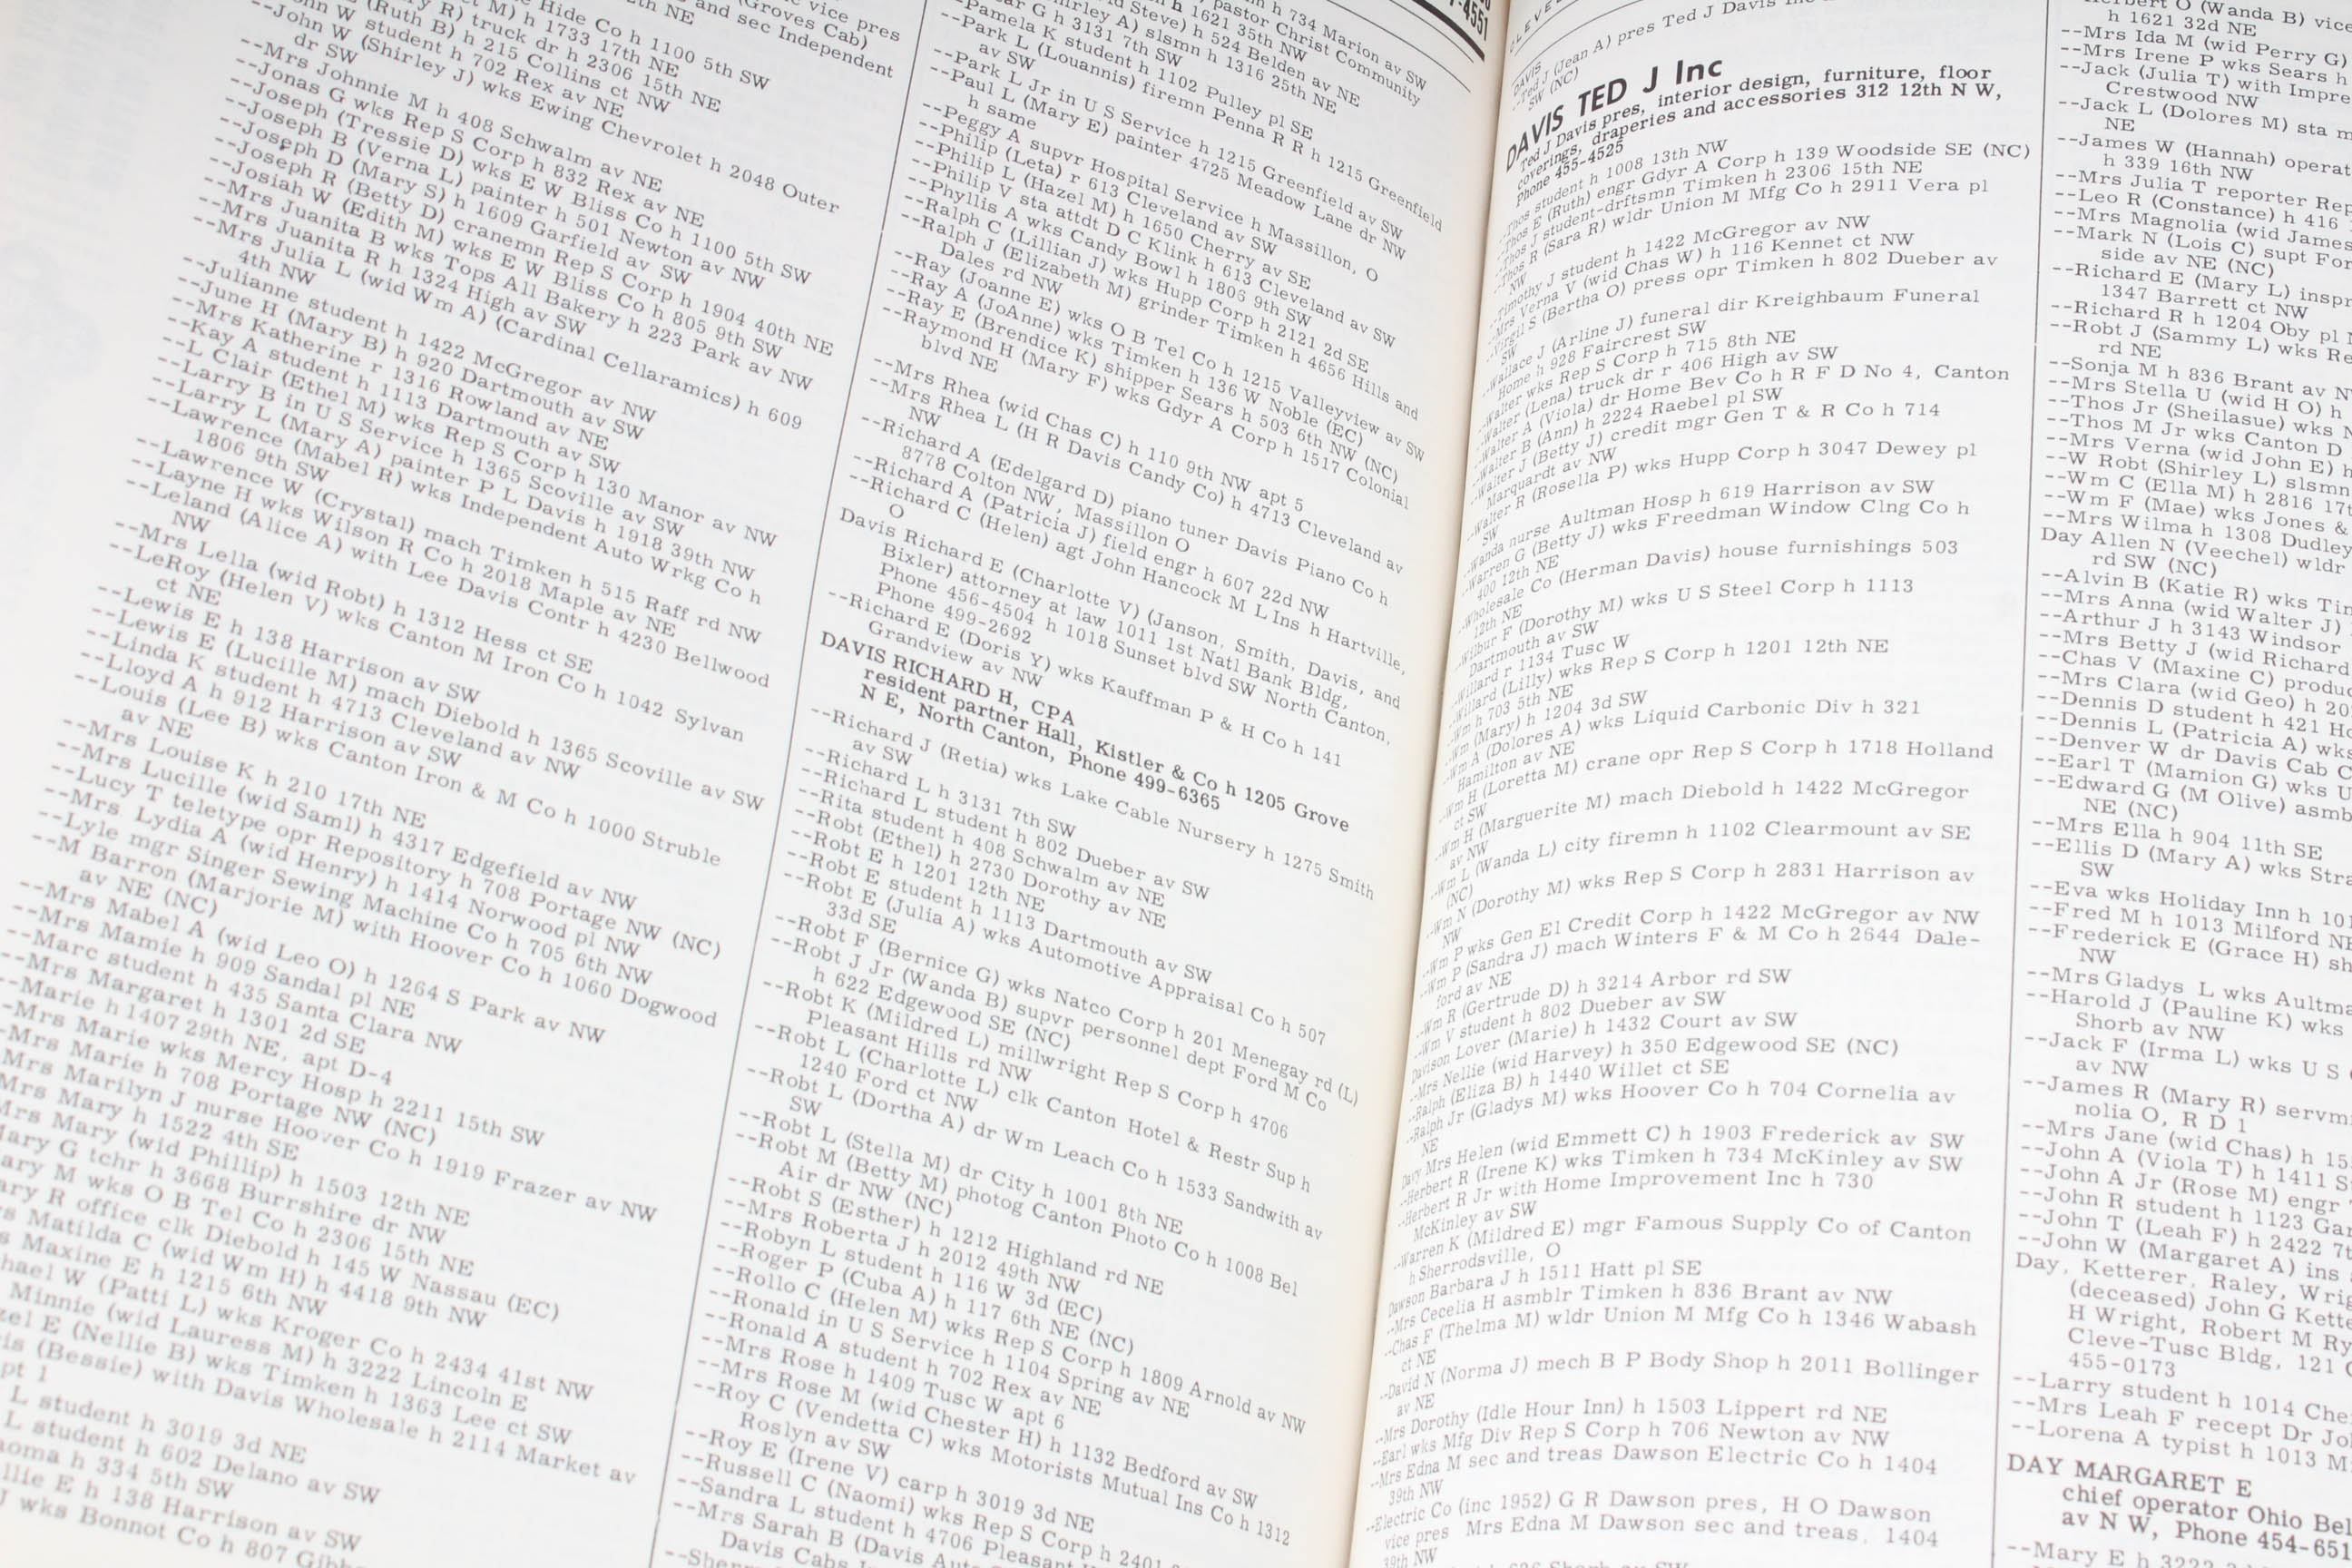 vice pres
(Groves Cab)
and sec Independent
Hide Co h 1100 5th SW
M) h 1733 17th NE
R) truck dr h 2306 15th NE
(Ruth B) h 215 Collins ct NW
W student h 702 Rex av NE
--John W (Shirley J) wks Ewing Chevrolet h 2048 Outer
dr SW
--Mrs Johnnie M h 408 Schwalm av NE
--Jonas G wks Rep S Corp h 832 Rex av NE
--Joseph (Tressie D) wks E W Bliss Co h 1100 5th SW
--Joseph B (Verna L) painter h 501 Newton av NW
--Joseph D (Mary S) h 1609 Garfield av SW
--Joseph R (Betty D) cranemn Rep S Corp h 1904 40th NE
--Josiah W (Edith M) wks E W Bliss Co h 805 9th SW
--Mrs Juanita B wks Tops All Bakery h 223 Park av NW
--Mrs Juanita R h 1324 High av SW
--Mrs Julia L (wid Wm A) (Cardinal Cellaramics) h 609
4th NW
--Julianne student h 1422 McGregor av NW
--June H (Mary B) h 920 Dartmouth av SW
--Mrs Katherine r 1316 Rowland av NE
--Kay A student h 1113 Dartmouth av SW
--L Clair (Ethel M) wks Rep S Corp h 130 Manor av NW
--Larry B in U S Service h 1365 Scoville av SW
--Larry L (Mary A) painter P L Davis h 1918 39th NW
--Lawrence (Mabel R) wks Independent Auto Wrkg Co h
1806 9th SW
--Lawrence W (Crystal) mach Timken h 515 Raff rd NW
--Layne H wks Wilson R Co h 2018 Maple av NE
--Leland (Alice A) with Lee Davis Contr h 4230 Bellwood
NW
--Mrs Lella (wid Robt) h 1312 Hess ct SE
--LeRoy (Helen V) wks Canton M Iron Co h 1042 Sylvan
ct NE
--Lewis E h 138 Harrison av SW
--Lewis E (Lucille M) mach Diebold h 1365 Scoville av SW
--Linda K student h 4713 Cleveland av NW
--Lloyd A h 912 Harrison av SW
--Louis (Lee B) wks Canton Iron & M Co h 1000 Struble
av NE
--Mrs Louise K h 210 17th NE
--Mrs Lucille (wid Saml) h 4317 Edgefield av NW
--Lucy T teletype opr Repository h 708 Portage NW (NC)
--Mrs Lydia A (wid Henry) h 1414 Norwood pl NW
--Lyle mgr Singer Sewing Machine Co h 705 6th NW
--M Barron (Marjorie M) with Hoover Co h 1060 Dogwood
av NE (NC)
--Mrs Mabel A (wid Leo O) h 1264 S Park av NW
--Mrs Mamie h 909 Sandal pl NE
--Marc student h 435 Santa Clara NW
--Mrs Margaret h 1301 2d SE
--Marie h 1407 29th NE, apt D-4
--Mrs Marie wks Mercy Hosp h 2211 15th SW
--Mrs Marie h 708 Portage NW (NC)
Mrs Marilyn J nurse Hoover Co h 1919 Frazer av NW
Mrs Mary h 1522 4th SE
Mrs Mary (wid Phillip) h 1503 12th NE
Mary G tchr h 3668 Burrshire dr NW
M wks O B Tel Co h 2306 15th NE
R office clk Diebold h 145 W Nassau (EC)
Matilda C (wid Wm H) h 4418 9th NW
Maxine E h 1215 6th NW
W (Patti L) wks Kroger Co h 2434 41st NW
Minnie (wid Lauress M) h 3222 Lincoln E
E (Nellie B) wks Timken h 1363 Lee ct SW
(Bessie) with Davis Wholesale h 2114 Market av
pt 1
L student h 3019 3d NE
L student h 602 Delano av SW
h 334 5th SW
E h 138 Harrison av SW
J wks Bonnot Co h 807
h 734 Marion av SW
pastor Christ Community
h 1621 35th NW
Steve) h 524 Belden av NE
A) slsmn h 1316 25th NE
G h 3131 7th SW
--Pamela K student h 1102 Pulley pl SE
--Park L (Louannis) firemn Penna R R h 1215 Greenfield
av SW
--Park L Jr in U S Service h 1215 Greenfield av SW
--Paul L (Mary E) painter 4725 Meadow Lane dr NW
h same
--Peggy A supvr Hospital Service h Massillon, O
--Philip (Leta) r 613 Cleveland av SW
--Philip L (Hazel M) h 1650 Cherry av SE
--Philip V sta attdt D C Klink h 613 Cleveland av SW
--Phyllis A wks Candy Bowl h 1806 9th SW
--Ralph C (Lillian J) wks Hupp Corp h 2121 2d SE
--Ralph J (Elizabeth M) grinder Timken h 4656 Hills and
Dales rd NW
--Ray (Joanne E) wks O B Tel Co h 1215 Valleyview av SW
--Ray A (JoAnne) wks Timken h 136 W Noble (EC)
--Ray E (Brendice K) shipper Sears h 503 6th NW (NC)
--Raymond H (Mary F) wks Gdyr A Corp h 1517 Colonial
blvd NE
--Mrs Rhea (wid Chas C) h 110 9th NW apt 5
--Mrs Rhea L (H R Davis Candy Co) h 4713 Cleveland av
NW
--Richard A (Edelgard D) piano tuner Davis Piano Co h
8778 Colton NW, Massillon O
--Richard A (Patricia J) field engr h 607 22d NW
--Richard C (Helen) agt John Hancock M L Ins h Hartville,
O
Davis Richard E (Charlotte V) (Janson, Smith, Davis, and
Bixler) attorney at law 1011 1st Natl Bank Bldg,
Phone 456-4504 h 1018 Sunset blvd SW North Canton,
Phone 499-2692
--Richard E (Doris Y) wks Kauffman P & H Co h 141
Grandview av NW
DAVIS RICHARD H, CPA
resident partner Hall, Kistler & Co h 1205 Grove
N E, North Canton, Phone 499-6365
--Richard J (Retia) wks Lake Cable Nursery h 1275 Smith
av SW
--Richard L h 3131 7th SW
--Richard L student h 802 Dueber av SW
--Rita student h 408 Schwalm av NE
--Robt (Ethel) h 2730 Dorothy av NE
--Robt E h 1201 12th NE
--Robt E student h 1113 Dartmouth av SW
--Robt E (Julia A) wks Automotive Appraisal Co h 507
33d SE
--Robt F (Bernice G) wks Natco Corp h 201 Menegay rd (L)
--Robt J Jr (Wanda B) supvr personnel dept Ford M Co
h 622 Edgewood SE (NC)
--Robt K (Mildred L) millwright Rep S Corp h 4706
Pleasant Hills rd NW
--Robt L (Charlotte L) clk Canton Hotel & Restr Sup h
1240 Ford ct NW
--Robt L (Dortha A) dr Wm Leach Co h 1533 Sandwith av
SW
--Robt L (Stella M) dr City h 1001 8th NE
--Robt M (Betty M) photog Canton Photo Co h 1008 Bel
Air dr NW (NC)
--Robt S (Esther) h 1212 Highland rd NE
--Mrs Roberta J h 2012 49th NW
--Robyn L student h 116 W 3d (EC)
--Roger P (Cuba A) h 117 6th NE (NC)
--Rollo C (Helen M) wks Rep S Corp h 1809 Arnold av NW
--Ronald in U S Service h 1104 Spring av NE
--Ronald A student h 702 Rex av NE
--Mrs Rose h 1409 Tusc W apt 6
--Mrs Rose M (wid Chester H) h 1132 Bedford av SW
--Roy C (Vendetta C) wks Motorists Mutual Ins Co h 1312
Roslyn av SW
--Roy E (Irene V) carp h 3019 3d NE
--Russell C (Naomi) wks Rep S Corp h 2401
--Sandra L student h 4706 Pleasant
--Mrs Sarah B (Davis
Davis Cabs
4551
DAVIS
--Ted J (Jean A) pres Ted J Davis
SW (NC)
DAVIS TED J Inc
Ted J Davis pres, interior design, furniture, floor
coverings, draperies and accessories 312 12th N W,
Phone 455-4525
--Thos student h 1008 13th NW
--Thos E (Ruth) engr Gdyr A Corp h 139 Woodside SE (NC)
--Thos J student-drftsmn Timken h 2306 15th NE
--Thos R (Sara R) wldr Union M Mfg Co h 2911 Vera pl
NW
--Timothy J student h 1422 McGregor av NW
--Mrs Verna V (wid Chas W) h 116 Kennet ct NW
--Virgil S (Bertha O) press opr Timken h 802 Dueber av
SW
--Wallace J (Arline J) funeral dir Kreighbaum Funeral
Home h 928 Faircrest SW
--Walter wks Rep S Corp h 715 8th NE
--Walter (Lena) truck dr r 406 High av SW
--Walter A (Viola) dr Home Bev Co h R F D No 4, Canton
--Walter B (Ann) h 2224 Raebel pl SW
--Walter J (Betty J) credit mgr Gen T & R Co h 714
Marquardt av NW
--Walter R (Rosella P) wks Hupp Corp h 3047 Dewey pl
SW
--Wanda nurse Aultman Hosp h 619 Harrison av SW
--Warren G (Betty J) wks Freedman Window Clng Co h
400 12th NE
--Wholesale Co (Herman Davis) house furnishings 503
12th NE
--Wilbur F (Dorothy M) wks U S Steel Corp h 1113
Dartmouth av SW
--Willard r 1134 Tusc W
--Willard (Lilly) wks Rep S Corp h 1201 12th NE
--Wm h 703 5th NE
--Wm (Mary) h 1204 3d SW
--Wm A (Dolores A) wks Liquid Carbonic Div h 321
Hamilton av NE
--Wm H (Loretta M) crane opr Rep S Corp h 1718 Holland
ct SW
--Wm H (Marguerite M) mach Diebold h 1422 McGregor
av NW
--Wm L (Wanda L) city firemn h 1102 Clearmount av SE
(NC)
--Wm N (Dorothy M) wks Rep S Corp h 2831 Harrison av
NW
--Wm P wks Gen El Credit Corp h 1422 McGregor av NW
--Wm P (Sandra J) mach Winters F & M Co h 2644 Dale-
ford av NE
--Wm R (Gertrude D) h 3214 Arbor rd SW
--Wm V student h 802 Dueber av SW
Davison Lover (Marie) h 1432 Court av SW
--Mrs Nellie (wid Harvey) h 350 Edgewood SE (NC)
--Ralph (Eliza B) h 1440 Willet ct SE
--Ralph Jr (Gladys M) wks Hoover Co h 704 Cornelia av
NE
Davy Mrs Helen (wid Emmett C) h 1903 Frederick av SW
--Herbert R (Irene K) wks Timken h 734 McKinley av SW
--Herbert R Jr with Home Improvement Inc h 730
McKinley av SW
--Warren K (Mildred E) mgr Famous Supply Co of Canton
h Sherrodsville, O
Dawson Barbara J h 1511 Hatt pl SE
--Mrs Cecelia H asmblr Timken h 836 Brant av NW
--Chas F (Thelma M) wldr Union M Mfg Co h 1346 Wabash
ct NE
--David N (Norma J) mech B P Body Shop h 2011 Bollinger
av NE
--Mrs Dorothy (Idle Hour Inn) h 1503 Lippert rd NE
--Earl wks Mfg Div Rep S Corp h 706 Newton av NW
--Mrs Edna M sec and treas Dawson Electric Co h 1404
39th NW
--Electric Co (inc 1952) G R Dawson pres, H O Dawson
vice pres Mrs Edna M Dawson sec and treas, 1404
39th NW
O (Wanda B) vice
h 1621 32d NE
--Mrs Ida M (wid Perry G)
--Mrs Irene P wks Sears h
--Jack (Julia T) with
Crestwood NW
--Jack L (Dolores M) sta
NE
--James W (Hannah)
h 339 16th NW
--Mrs Julia T reporter
--Leo R (Constance) h 416
--Mrs Magnolia (wid James
--Mark N (Lois C) supt
side av NE (NC)
--Richard E (Mary L)
1347 Barrett ct NW
--Richard R h 1204 Oby pl
--Robt J (Sammy L) wks
rd NE
--Sonja M h 836 Brant av
--Mrs Stella U (wid H O) h
--Thos Jr (Sheilasue) wks
--Thos M Jr wks Canton D
--Mrs Verna (wid John E) h
--W Robt (Shirley L) slsmn
--Wm C (Ella M) h 2816
--Wm F (Mae) wks Jones &
--Mrs Wilma h 1308 Dudley
Day Allen N (Veechel) wldr
rd SW (NC)
--Alvin B (Katie R) wks
--Mrs Anna (wid Walter J)
--Arthur J h 3143 Windsor
--Mrs Betty J (wid Richard
--Chas V (Maxine C)
--Mrs Clara (wid Geo) h
--Dennis D student h 421
--Dennis L (Patricia A) wks
--Denver W dr Davis Cab
--Earl T (Mamion G) wks
--Edward G (M Olive)
NE (NC)
--Mrs Ella h 904 11th SE
--Ellis D (Mary A) wks
SW
--Eva wks Holiday Inn h
--Fred M h 1013 Milford
--Frederick E (Grace H)
NW
--Mrs Gladys L wks
--Harold J (Pauline K) wks
Shorb av NW
--Jack F (Irma L) wks U S
av NW
--James R (Mary R)
nolia O, R D 1
--Mrs Jane (wid Chas) h
--John A (Viola T) h 1411
--John A Jr (Rose M) engr
--John R student h 1123
--John T (Leah F) h 2422
--John W (Margaret A) ins
Day, Ketterer, Raley,
(deceased) John G
H Wright, Robert M
Cleve-Tusc Bldg, 121
455-0173
--Larry student h 1014
--Mrs Leah F recept Dr
--Lorena A typist h 1013
DAY MARGARET E
chief operator Ohio Bel
av N W, Phone
--Mary E h